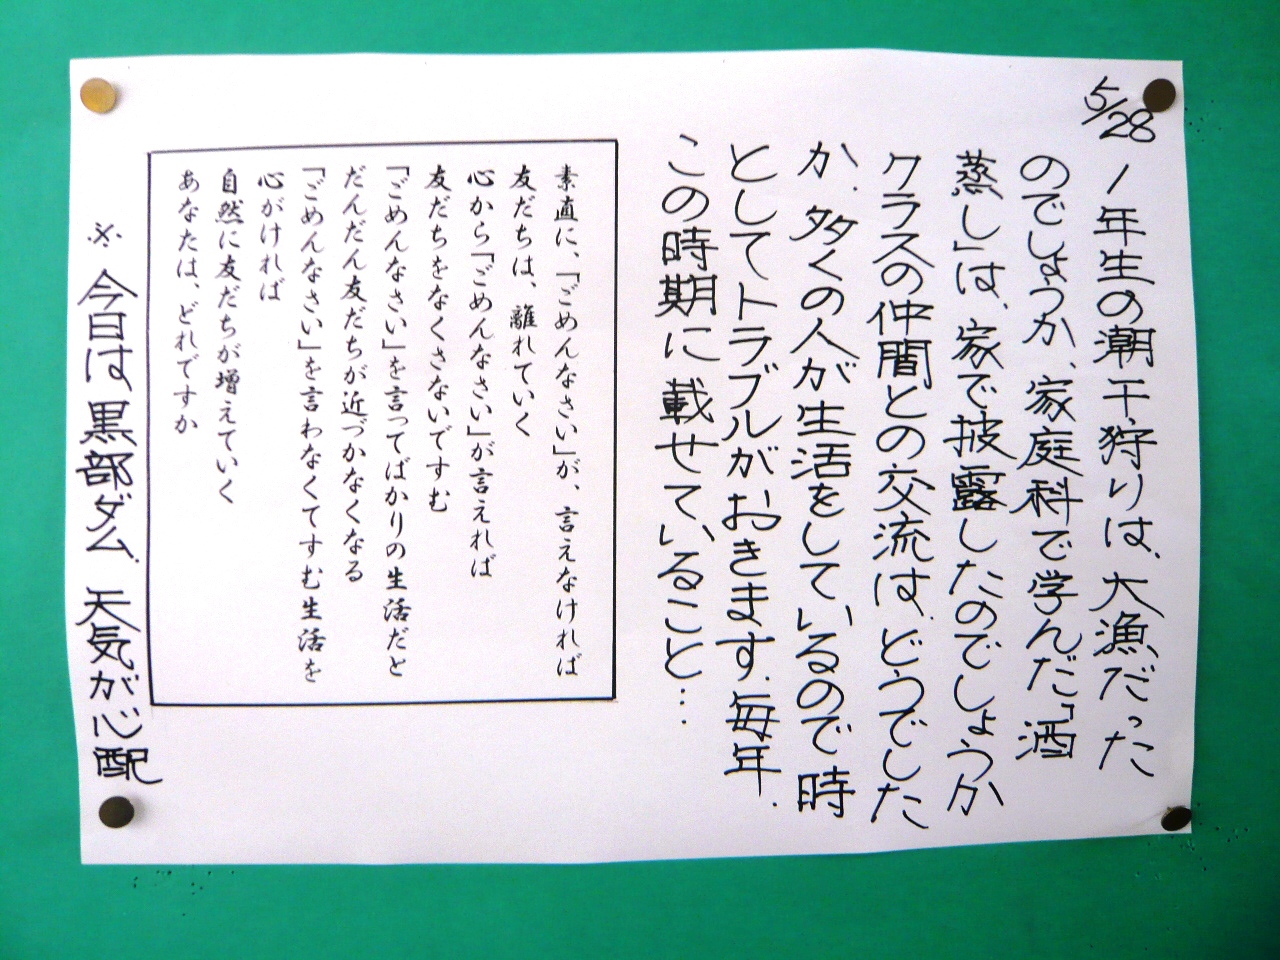 5/28
1年生の潮干狩りは、大漁だった
のでしょうか、家庭科で学んだ「酒
蒸し」は、家で披露したのでしょうか
クラスの仲間との交流は、どうでした
か、多くの人が生活をしているので時
としてトラブルがおきます。毎年、
この時期に載せていること…
素直に、「ごめんなさい」が、言えなければ
友だちは、離れていく
心から「ごめんなさい」が言えれば
友だちをなくさないですむ
「ごめんなさい」を言ってばかりの生活だと
だんだん友だちが近づかなくなる
「ごめんなさい」を言わなくてすむ生活を
心がければ
自然に友だちが増えていく
あなたは、どれですか
※今日は黒部ダム、天気が心配